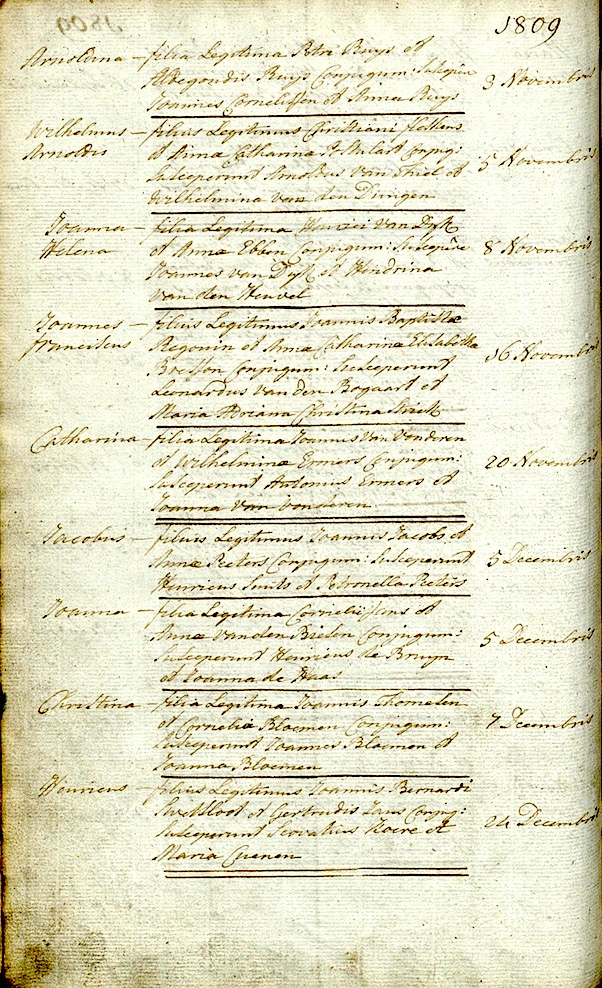 1809
Arnoldina — filia Legitima Petri Buys et
Aldegondis Buys Conjugum: Suscepere 3 Novembris
Joannes Cornelissen et Anna Buys
Wilhelmus — filius Legitimus Christiani
Arnoldus et Annæ Catharinæ Conjug: 5 Novembris
Susceperunt Arnoldus van Thiel et
Wilhelmina van den Dungen
Joanna — filia Legitima Henrici Van Dyk
Helena et Annæ Ebben Conjugum: Suscepêre 8 Novembris
Joannes van Dyk et Hendrina
van den Heuvel
Joannes — filius Legitimus Joannis Baptistæ
franciscus Regouin et Annæ Catharinæ Elisabethæ 16 Novembris
Conjugum: Susceperunt
Leonardus van den Bogaart et
Maria Adriana Christina
Catharina — filia Legitima Joannis Van Vonderen
et Wilhelminæ Ermers Conjugum: 20 Novembris
Susceperunt Antonius Ermers et
Joanna Van Vonderen
Jacobus — filius Legitimus Joannis Jacobs et
Annæ Peeters Conjugum: Susceperunt 5 Decembris
Henricus Smits et Petronella Peeters
Joanna — filia Legitima Cornelii Jans et
Annæ van den Bielen Conjugum: 5 Decembris
Susceperunt Henricus de Bruyn
et Joanna de Haas
Christina — filia Legitima Joannis Thomesen
et Cornelia Bloemen Conjugum: 7 Decembris
Susceperunt Joannes Bloemen et
Joanna Bloemen
Henricus — filius Legitimus Joannis Bernardi
et Gertrudis Jans Conjug: 24 Decembris
Susceperunt et
Maria Cuenen